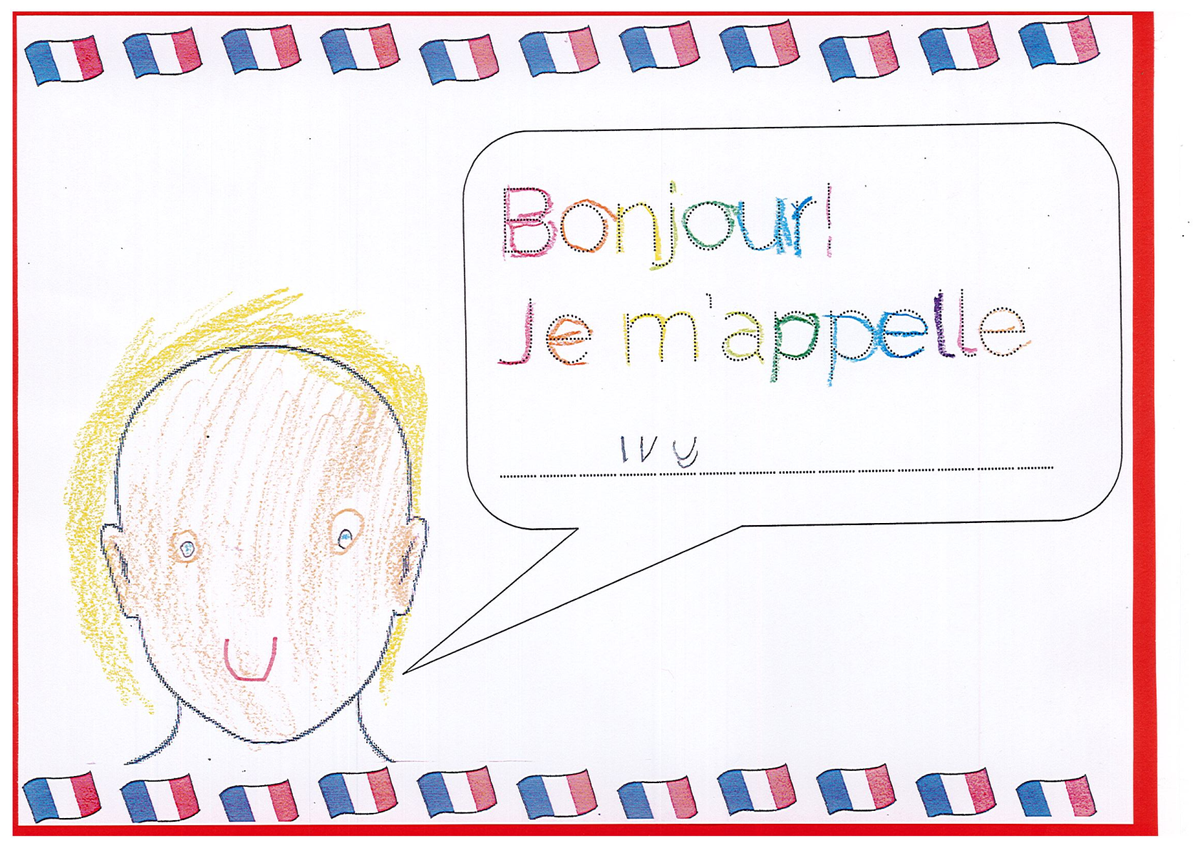 Bonjour!
Je m'appelle
Ivy